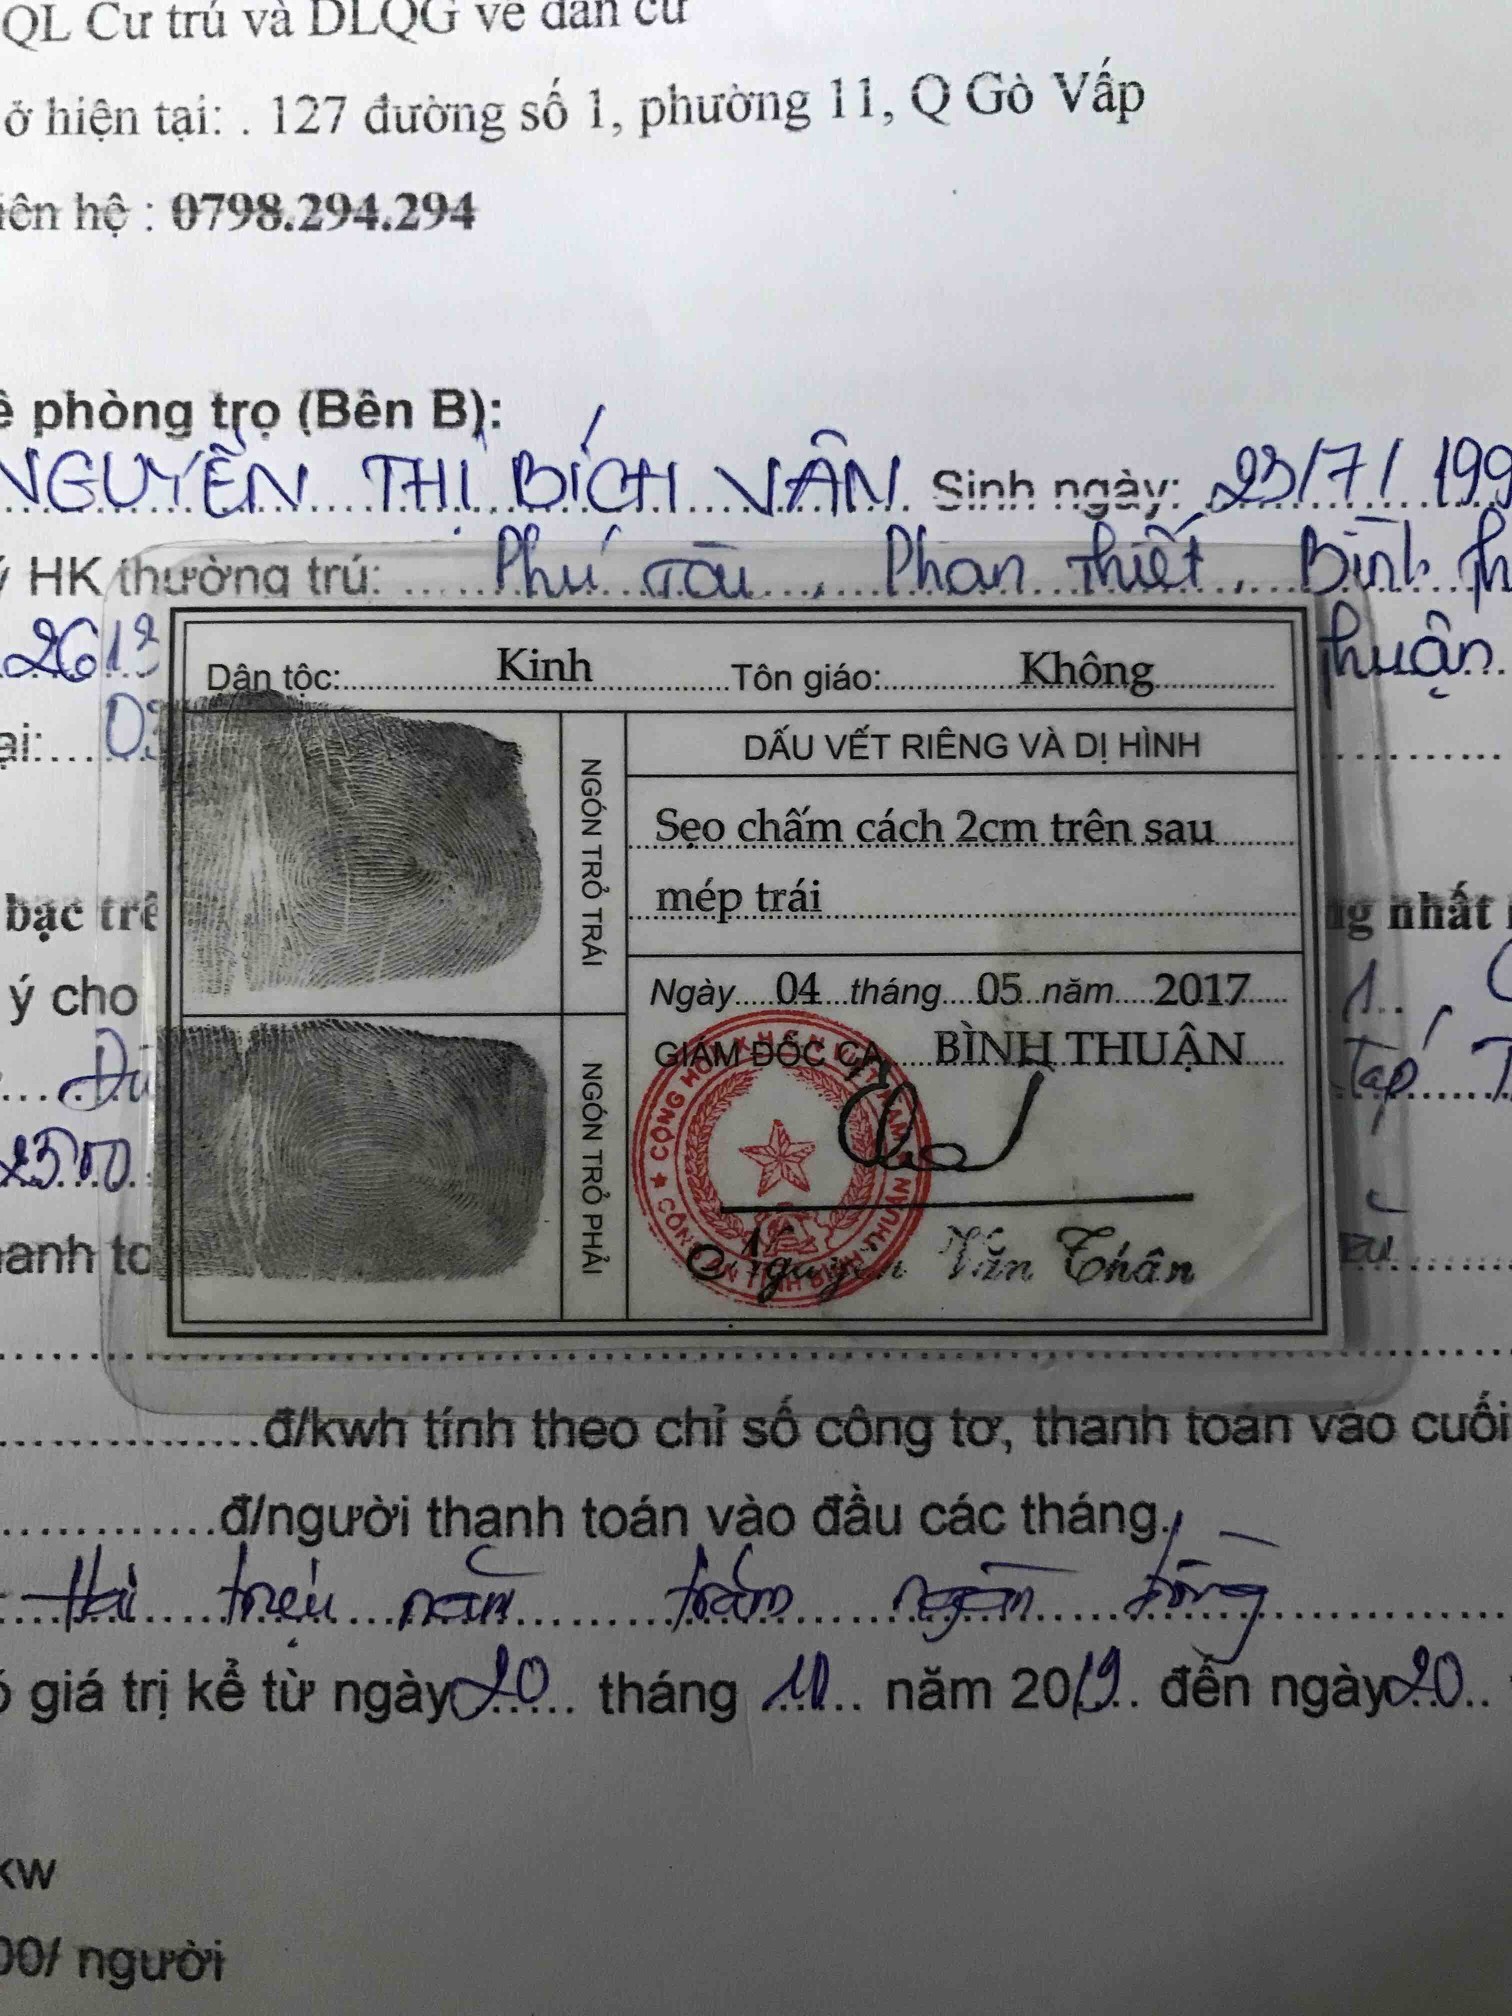 QL Cư trú và DLQG về dân cư
ở hiện tại: . 127 đường số 1, phường 11, Q Gò Vấp
iên hệ : 0798.294.294
ê phòng trọ (Bên B):
NGUYỄN THỊ BÍCH VÂN. Sinh ngày: 23/7/199
ý HK thường trú: Phú Tài, Phan Thiết, Bình Th
2613
Thuận
Dân tộc: Kinh Tôn giáo: Không
ại: 03
DẤU VẾT RIÊNG VÀ DỊ HÌNH
NGÓN TRỎ TRÁI
Sẹo chấm cách 2cm trên sau
mép trái
bạc trê
ng nhất
ý cho
Ngày 04 tháng 05 năm 2017
GIÁM ĐỐC CA BÌNH THUẬN
CỘNG HÒA XÃ HỘI CHỦ NGHĨA VIỆT NAM
CÔNG AN TỈNH BÌNH THUẬN
NGÓN TRỎ PHẢI
2500
Nguyễn Văn Thân
anh to
đ/kwh tính theo chỉ số công tơ, thanh toán vào cuối
đ/người thanh toán vào đầu các tháng.
Hai triệu năm trăm ngàn đồng
ó giá trị kể từ ngày 20 tháng 10 năm 2019 đến ngày 20
kw
00/ người